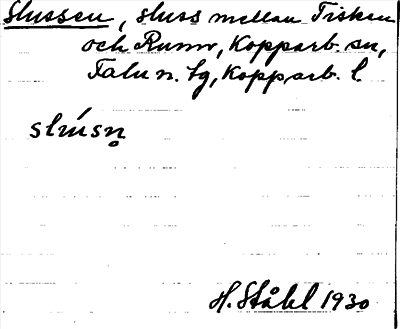 Slussen, sluss mellan Tisken
och Runn, Kopparb. sn,
Falu n. tg, Kopparb. l.
slússn̥
H. Ståhl 1930